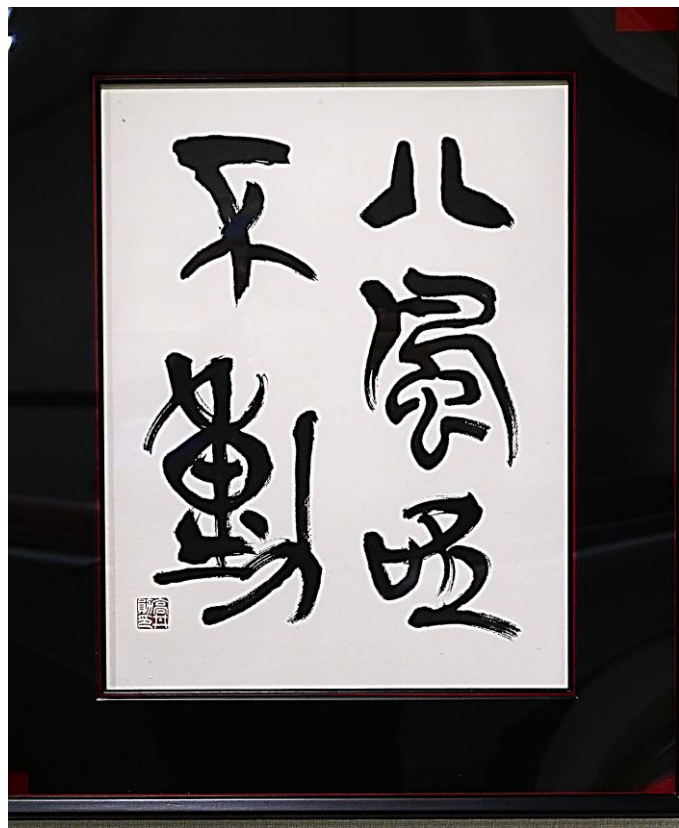 八風吹
不動